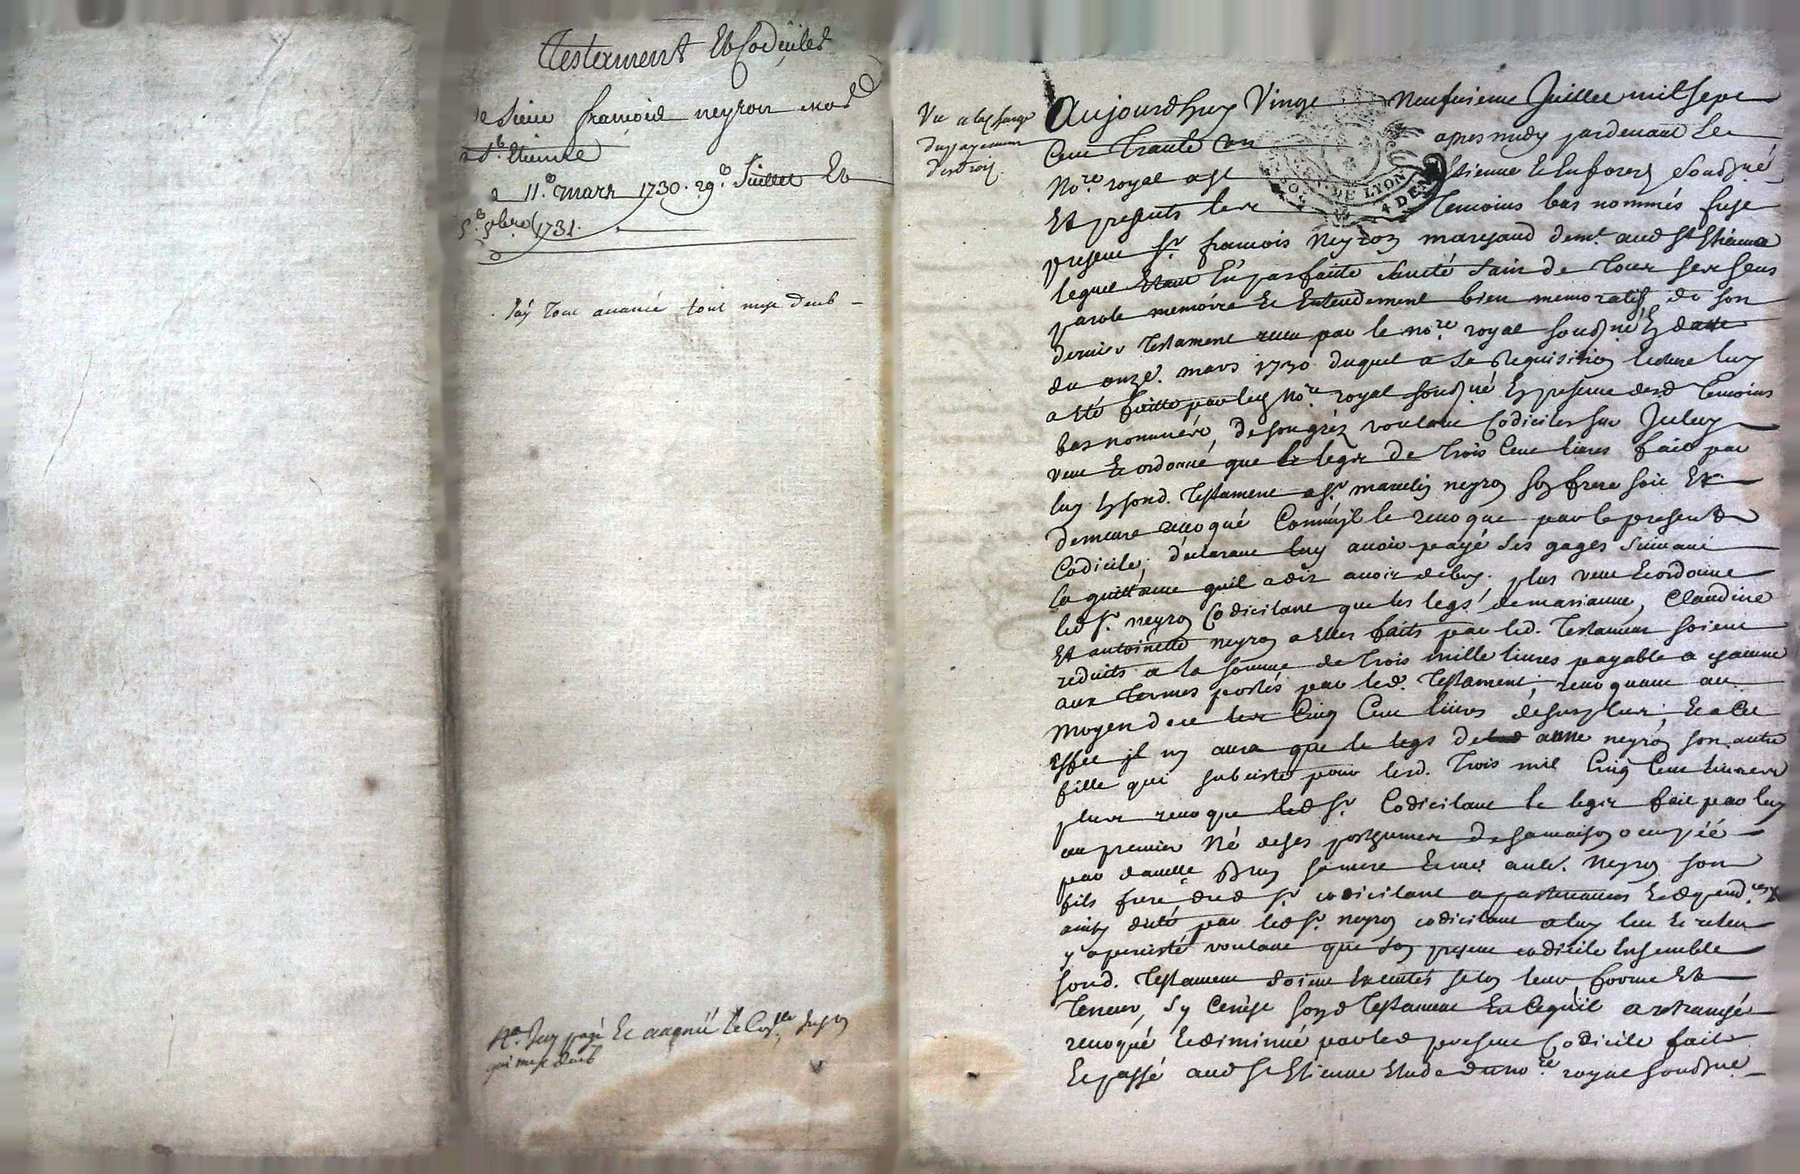 Testament Et Codiciles
de Sieur françois neyron mard
a St. Etienne
11e mars 1730. 29e Juillet Et
5e 9bre 1731.
J'ay tout avancé tout m'est deub
Na. J'ay payé Et
qui m'est deub
Vu a la charge
du payement
des droits.
DE LYON
4 DEN
Aujourdhuy Vingt Neufvieme Juillet mil sept
Cent Trante un apres midy pardevant Le
Nore. royal a St Etienne En forez Soussigné
Et presents les Temoins bas nommés fust
present Sr. françois Neyron marchand demt. aud St Etienne
lequel Etant En parfaitte santé sain de tous ses sens
parole memoire Et Entendement bien memoratif de son
dernier Testament receu par le nore. royal soussigné En datte
du onze. mars 1730. duquel a Sa Requisition lecture luy
a Eté faitte par led Nore. royal soussigné En presence desd Temoins
bas nommés, de son gréz voulant Codiciler Sur Iceluy
veut Et ordonne que le legs de Trois Cent livres fait par
luy En sond. Testament a Sr. marcelin neyron son frere soit Et
demeure revoqué Comm'jl le revoque par le present
Codicile, declarant luy avoir payé Ses gages Suivant
la quittance quil a dit avoir de luy. plus veut Et ordonne
led Sr. neyron Codicilant que les legs de marianne, Claudine
Et antoinette neyron a Elles faits par led. Testament soient
reduits a la somme de Trois mille livres payable a chacune
aux Termes portés par led. Testament, revoquant au
moyen de ce les Cinq Cent livres de surplus, Et a Cet
Effet jl ny aura que le legs de anne neyron son autre
fille qui subsiste pour lesd. Trois mil Cinq Cent livres
plus revoque led Sr. Codicilant le legs fait par luy
au premier Né de ses posthumes de sa maison occupée
par damelle Bruy sa mere Et me ant. Neyron son
fils frere dud Sr. codicilant apartenances Et dependces
ainsy duté par led Sr. neyron codicilant a luy leu Et releu
y a persisté voulant que son present codicile Ensemble
sond. Testament soient Executés selon leur forme Et
Teneur, Sy Ce n'est sond Testament En Ce quil a changé
revoqué Et diminué par led present Codicile fait
Et passé aud St Etienne Etude du nore royal soussigné